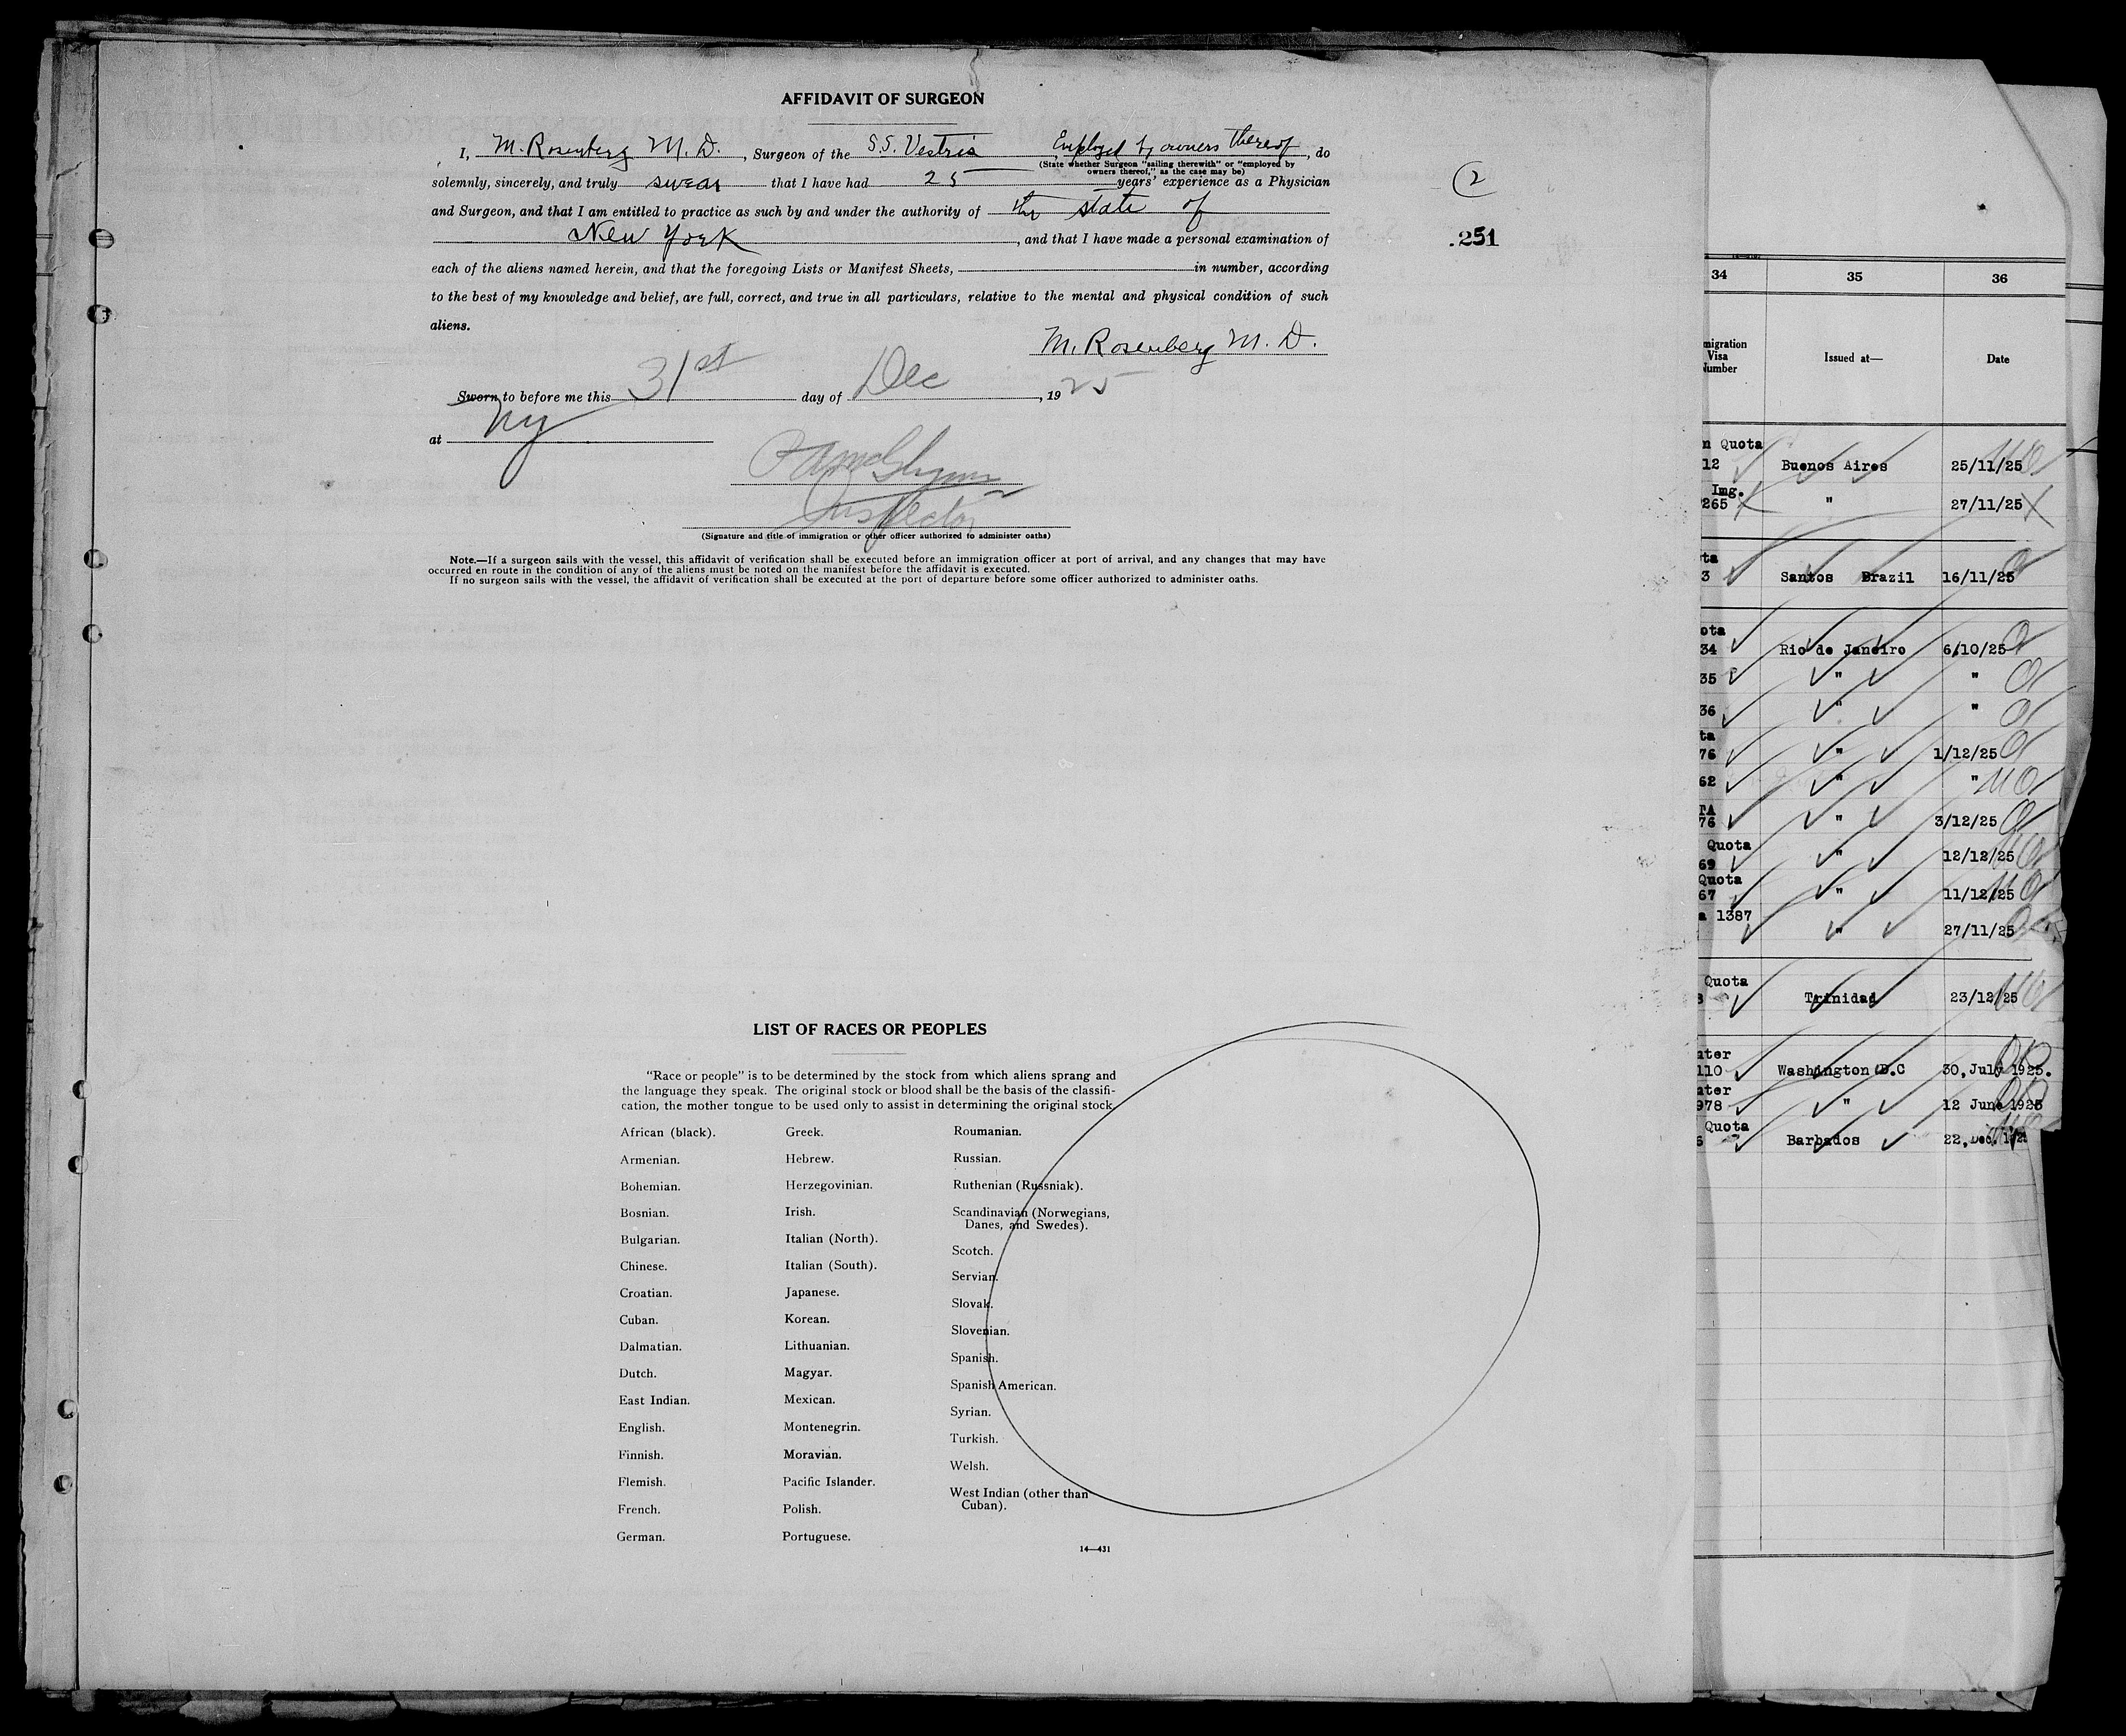 AFFIDAVIT OF SURGEON
I, M. Rosenberg M. D., Surgeon of the S.S. Vestris Employed by owners thereof, do
(State whether Surgeon "sailing therewith" or "employed by
owners thereof," as the case may be)
solemnly, sincerely, and truly swear that I have had 25 years' experience as a Physician
and Surgeon, and that I am entitled to practice as such by and under the authority of the state of
New York, and that I have made a personal examination of
each of the aliens named herein, and that the foregoing Lists or Manifest Sheets, in number, according
to the best of my knowledge and belief, are full, correct, and true in all particulars, relative to the mental and physical condition of such
aliens.
M. Rosenberg M. D.
Sworn to before me this 31st day of Dec, 1925
at NY
Inspector
(Signature and title of immigration or other officer authorized to administer oaths)
Note.—If a surgeon sails with the vessel, this affidavit of verification shall be executed before an immigration officer at port of arrival, and any changes that may have
occurred en route in the condition of any of the aliens must be noted on the manifest before the affidavit is executed.
If no surgeon sails with the vessel, the affidavit of verification shall be executed at the port of departure before some officer authorized to administer oaths.
2
.251
LIST OF RACES OR PEOPLES
"Race or people" is to be determined by the stock from which aliens sprang and
the language they speak. The original stock or blood shall be the basis of the classifi-
cation, the mother tongue to be used only to assist in determining the original stock.
African (black).
Armenian.
Bohemian.
Bosnian.
Bulgarian.
Chinese.
Croatian.
Cuban.
Dalmatian.
Dutch.
East Indian.
English.
Finnish.
Flemish.
French.
German.
Greek.
Hebrew.
Herzegovinian.
Irish.
Italian (North).
Italian (South).
Japanese.
Korean.
Lithuanian.
Magyar.
Mexican.
Montenegrin.
Moravian.
Pacific Islander.
Polish.
Portuguese.
Roumanian.
Russian.
Ruthenian (Russniak).
Scandinavian (Norwegians,
Danes, and Swedes).
Scotch.
Servian.
Slovak.
Slovenian.
Spanish.
Spanish American.
Syrian.
Turkish.
Welsh.
West Indian (other than
Cuban).
14—431
34 35 36
migration
Visa
Number
Issued at—
Date
n Quota
12 Buenos Aires 25/11/25
Img.
265 " 27/11/25
ta
3 Santos Brazil 16/11/25
ota
34 Rio de Janeiro 6/10/25
35 " "
36 " "
ta
76 " 1/12/25
62 " "
TA
76 " 3/12/25
Quota
69 " 12/12/25
Quota
67 " 11/12/25
a 1387
" 27/11/25
Quota
3 Trinidad 23/12/25
nter
110 Washington D.C 30, July 1925.
nter
978 " 12 June 1925
Quota
6 Barbados 22, Dec. 192